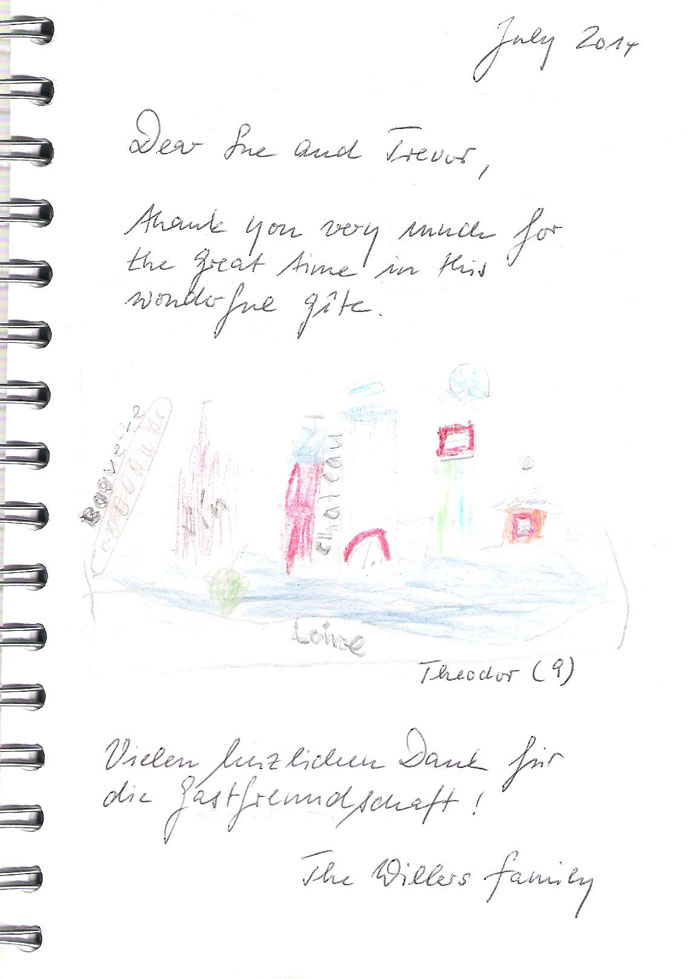 July 2014
Dear Sue and Trevor,
Thank you very much for
the great time in this
wonderful gîte.
chateau
Loire
Theodor (9)
Vielen herzlichen Dank für
die Gastfreundschaft!
The Willers family